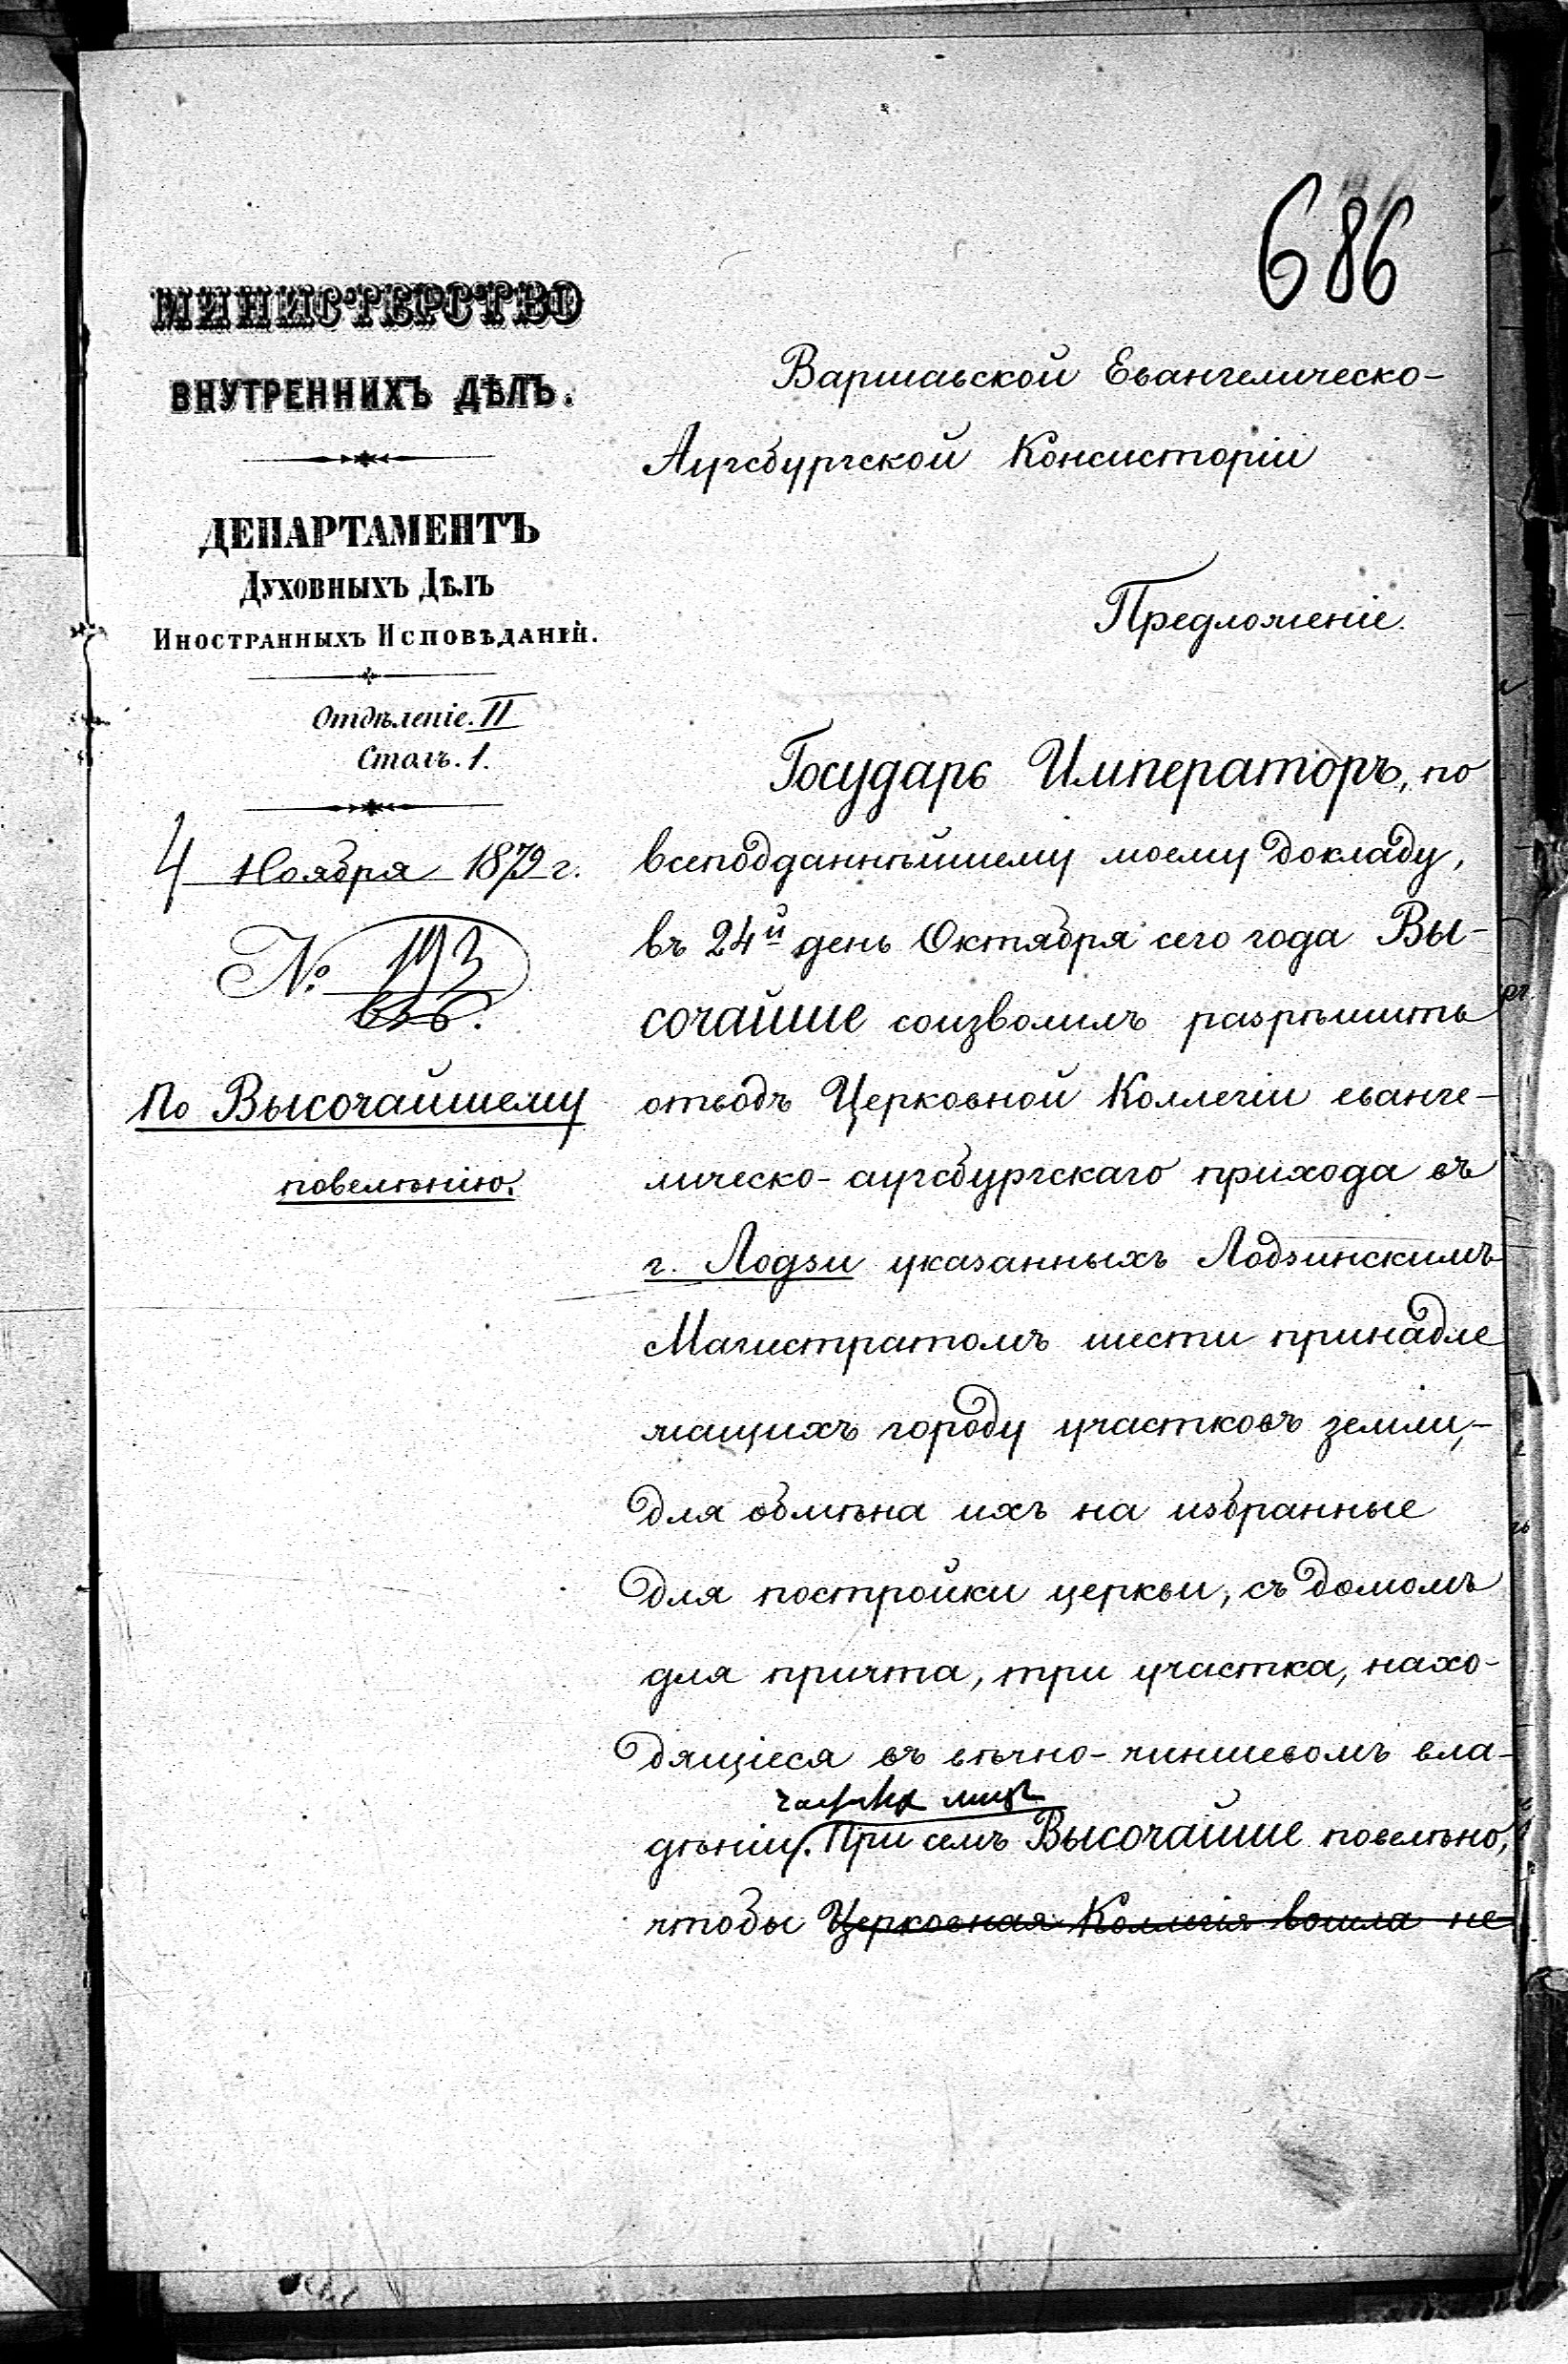 686
МИНИСТЕРСТВО
ВНУТРЕННИХЪ ДѢЛЪ.
ДЕПАРТАМЕНТЪ
ДУХОВНЫХЪ ДѢЛЪ
ИНОСТРАННЫХЪ ИСПОВѢДАНІЙ.
Отдѣленіе. II
Столъ. 1.
4 Ноября 1879 г.
№ 193
По Высочайшему
повелѣнію.
Варшавской Евангелическо-
Аугсбургской Консисторіи
Предложеніе.
Государь Императоръ, по
всеподданнѣйшему моему докладу,
въ 24й день Октября сего года Вы-
сочайше соизволилъ разрѣшить
отводъ Церковной Коллегіи еванге-
лическо-аугсбургскаго прихода въ
г. Лодзи указанныхъ Лодзинскимъ
Магистратомъ шести принадле
жащихъ городу участковъ земли,-
для обмѣна ихъ на избранные
для постройки церкви, съ домомъ
для причта, три участка, нахо-
дящіеся въ вѣчно-чиншевомъ вла-
частныхъ лицъ
дѣніи. При семъ Высочайше повелѣно,
чтобы Церковная Коллегія вошла не